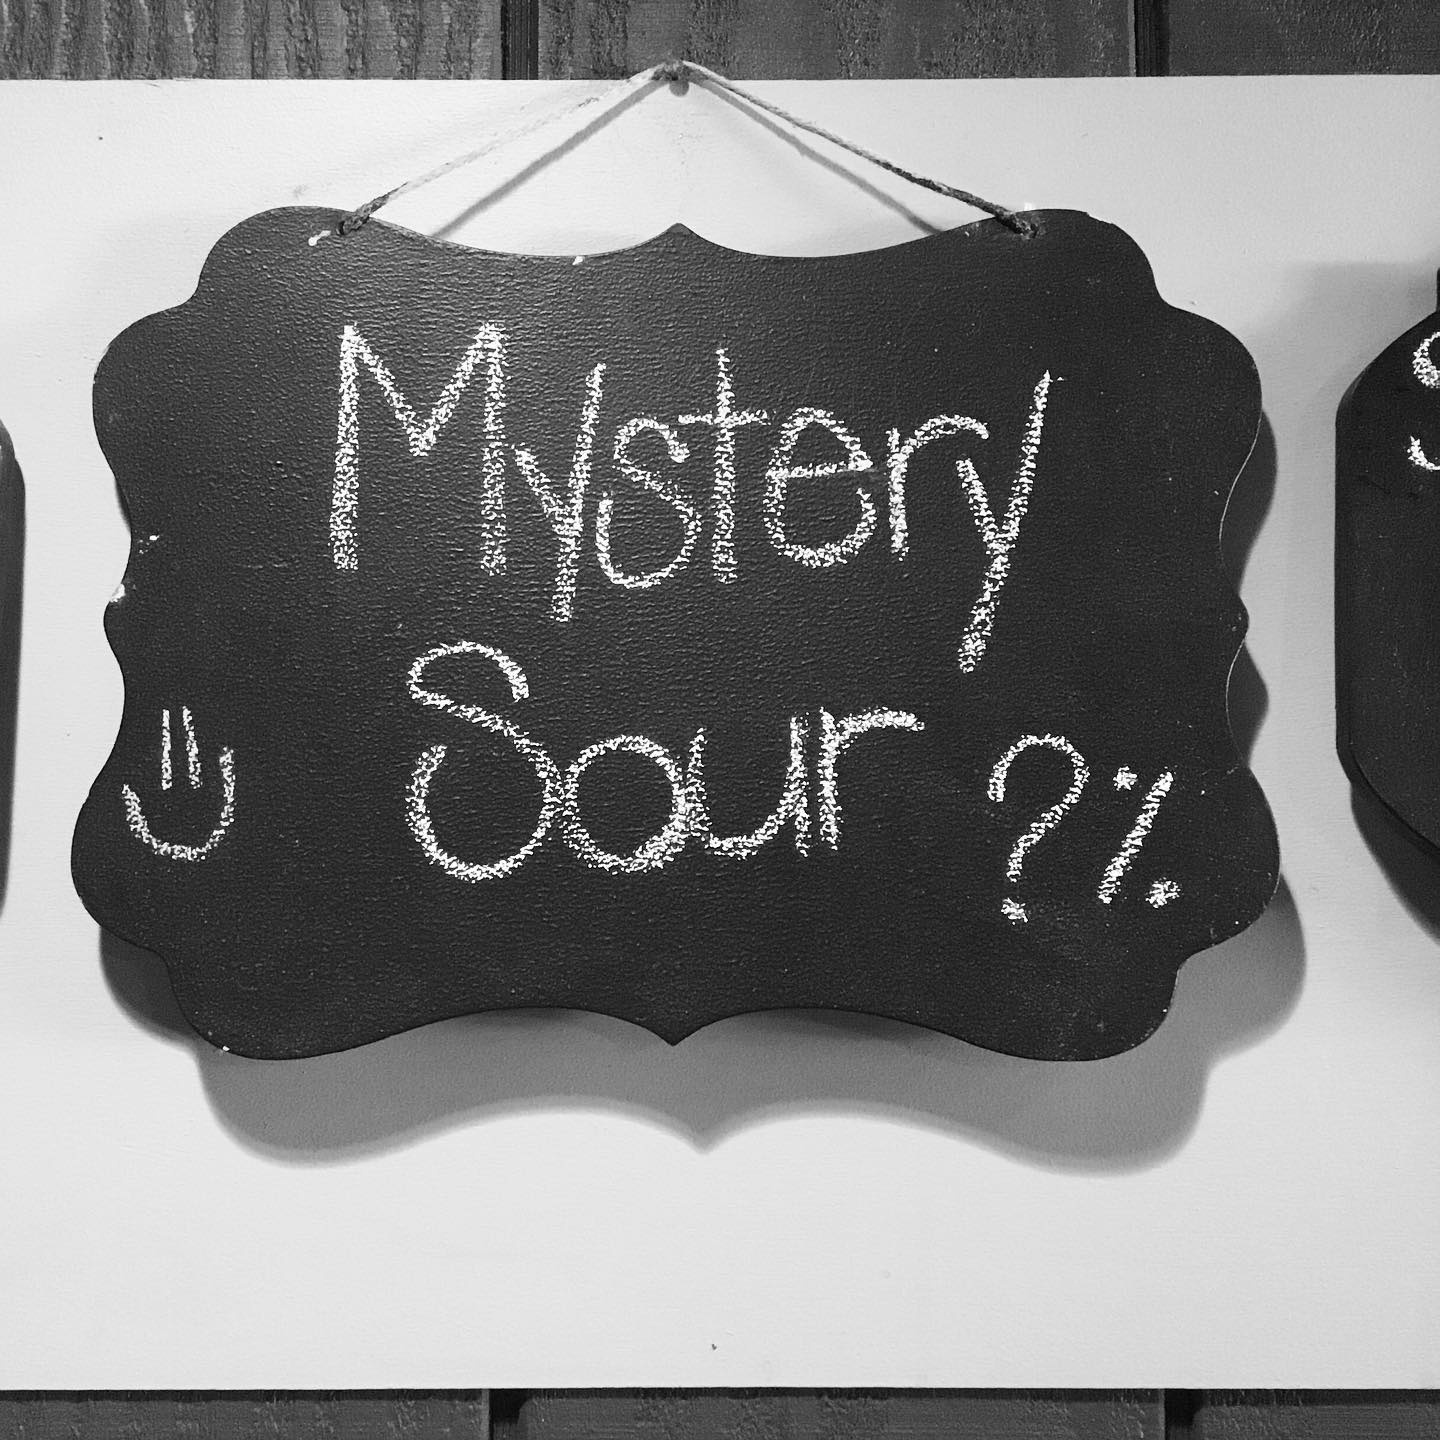 Mystery
Sour ?%